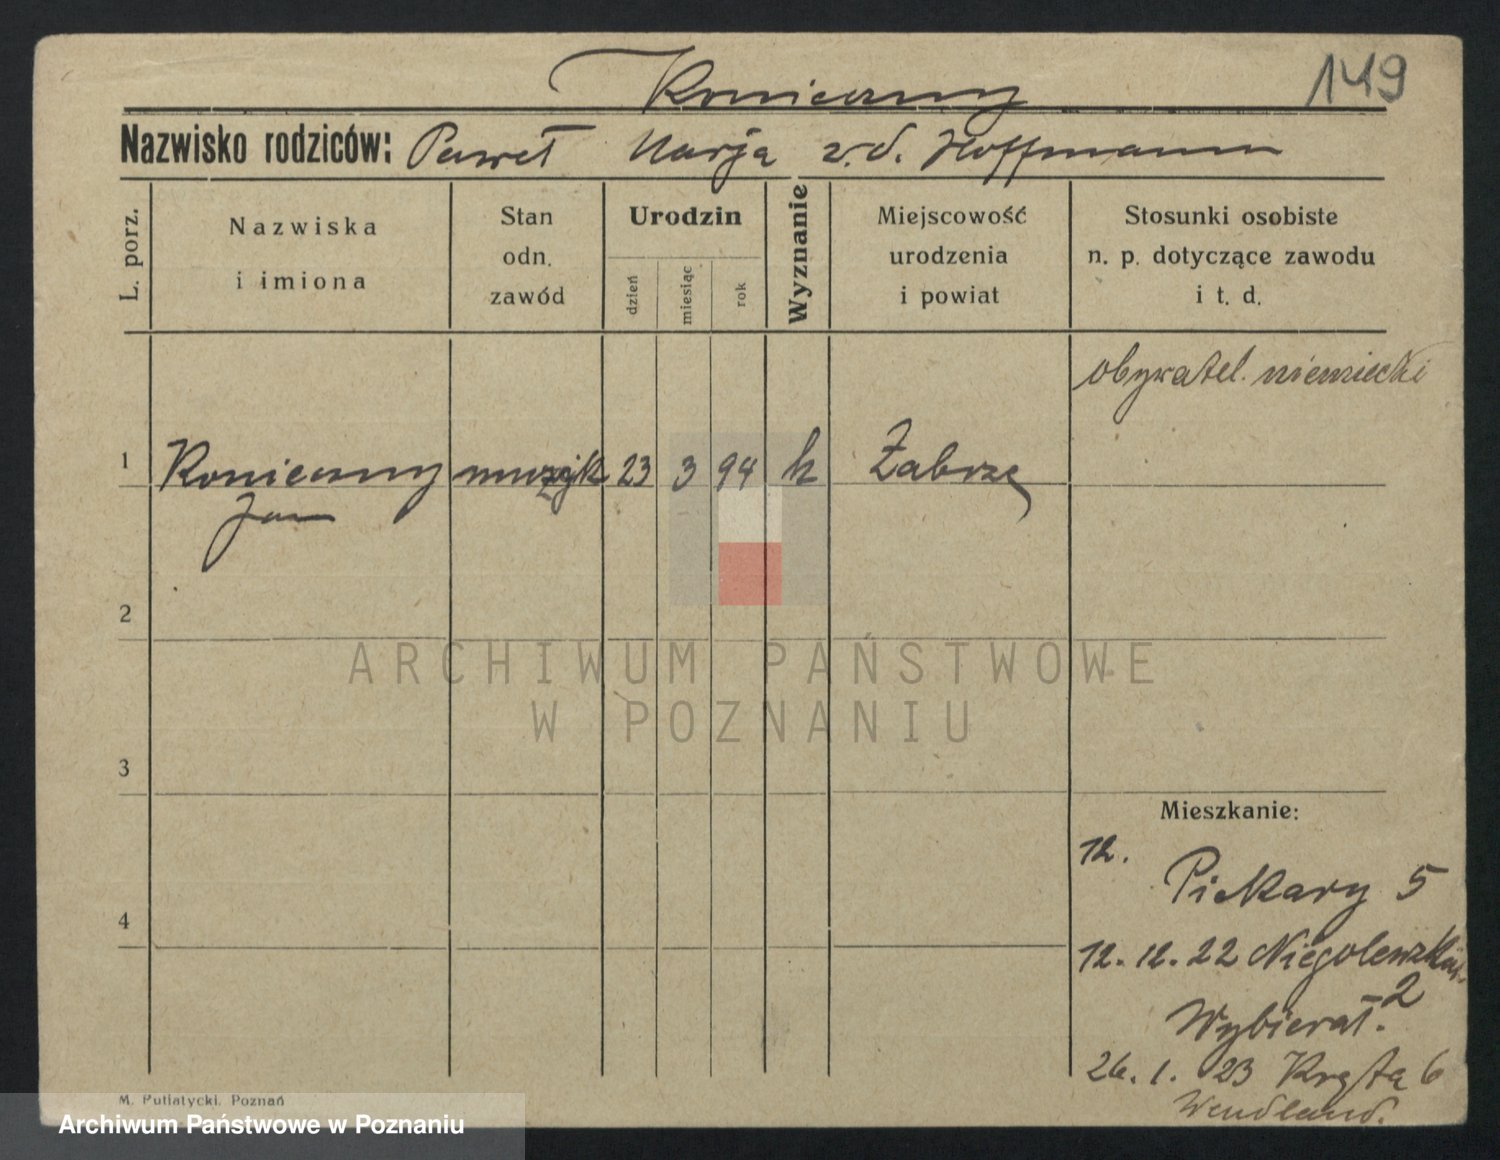 Konieczny
149
Nazwisko rodziców: Paweł Marja z.d. Hoffmann
L. porz.
Nazwiska
i imiona
Stan
odn.
zawód
Urodzin
dzień
miesiąc
rok
Wyznanie
Miejscowość
urodzenia
i powiat
Stosunki osobiste
n. p. dotyczące zawodu
i t. d.
obywatel. niemiecki
1 Konieczny muzyk 23 3 94 k Zabrze
Jan
2
ARCHIWUM PAŃSTWOWE
W POZNANIU
3
Mieszkanie:
12.
Piekary 5
4
12. 12. 22
2
Wybierał.
26. 1. 23 Kręta 6
Wendland.
M. Putiatycki, Poznań
Archiwum Państwowe w Poznaniu